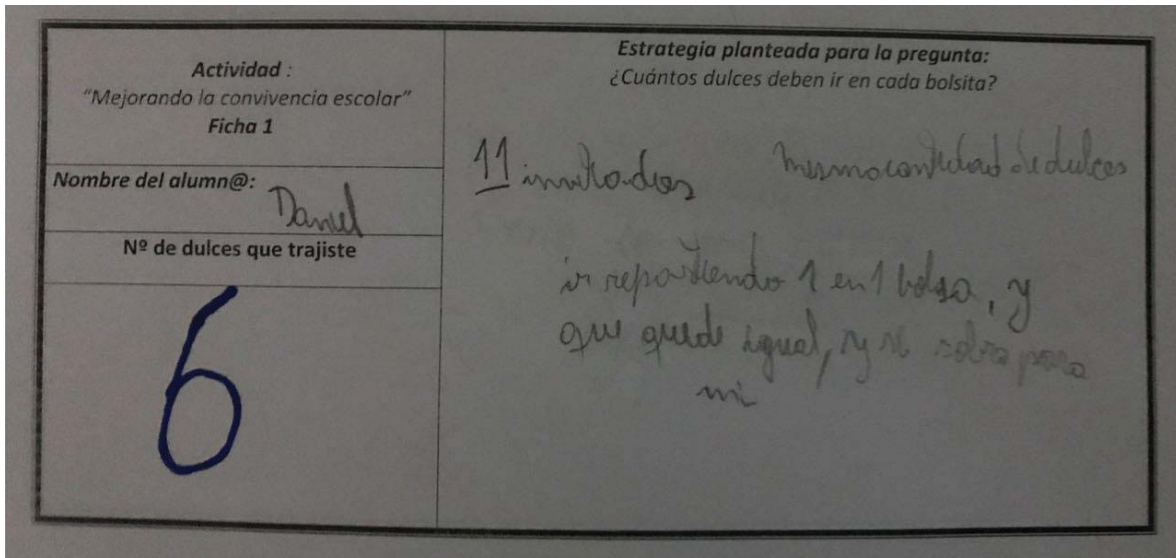 Actividad :
“Mejorando la convivencia escolar”
Ficha 1
Nombre del alumn@:
Daniel
Nº de dulces que trajiste
6
Estrategia planteada para la pregunta:
¿Cuántos dulces deben ir en cada bolsita?
11 invitados misma cantidad de dulces
ir repartiendo 1 en 1 bolsa, y
que quede igual, y si sobra para
mi